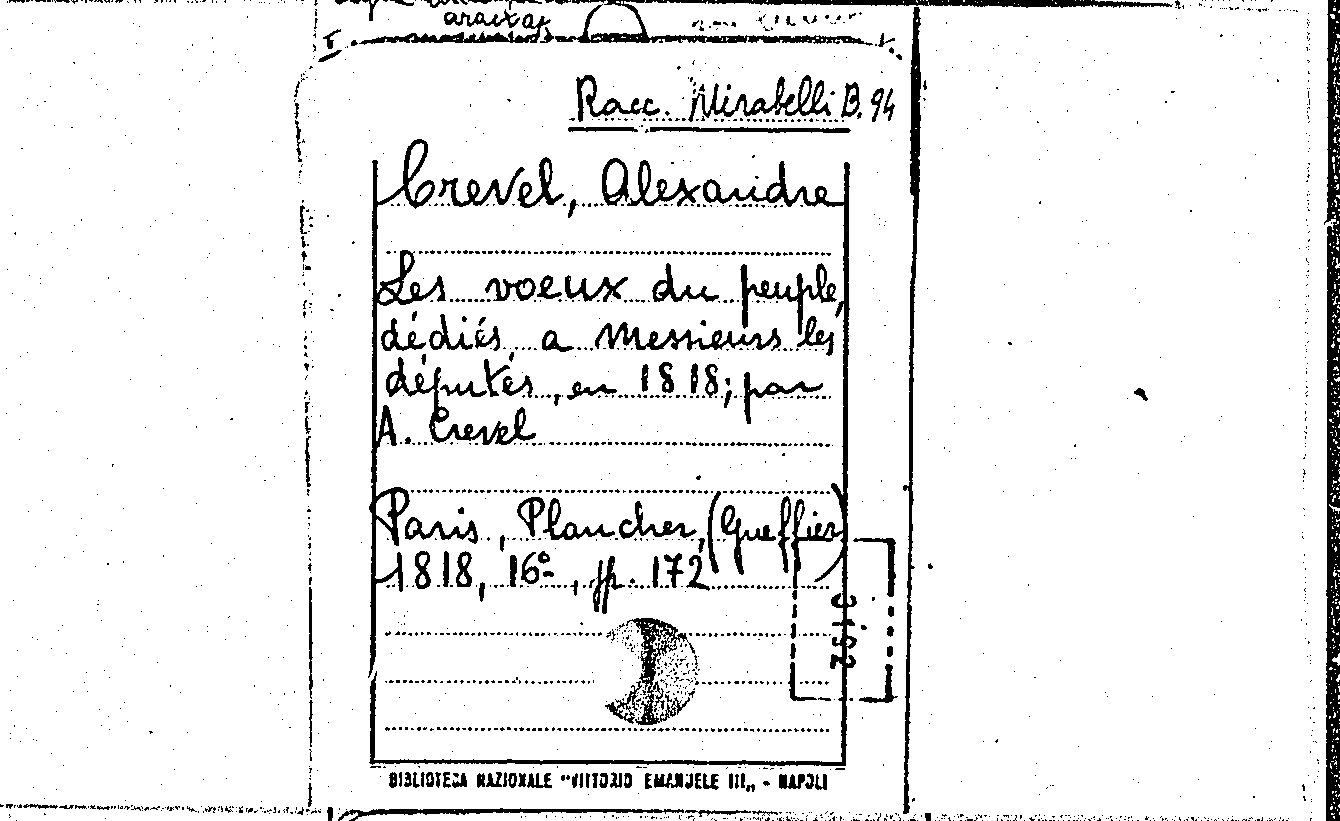 Racc. Mirabelli B. 94
Crevel, Alexandre
Les voeux du peuple,
dédiés a Messieurs les
députés, en 1818; par
A. Crevel
Paris, Plancher, (Gueffier)
1818, 16º, pp. 172
BIBLIOTECA NAZIONALE "VITTORIO EMANUELE III„ - NAPOLI